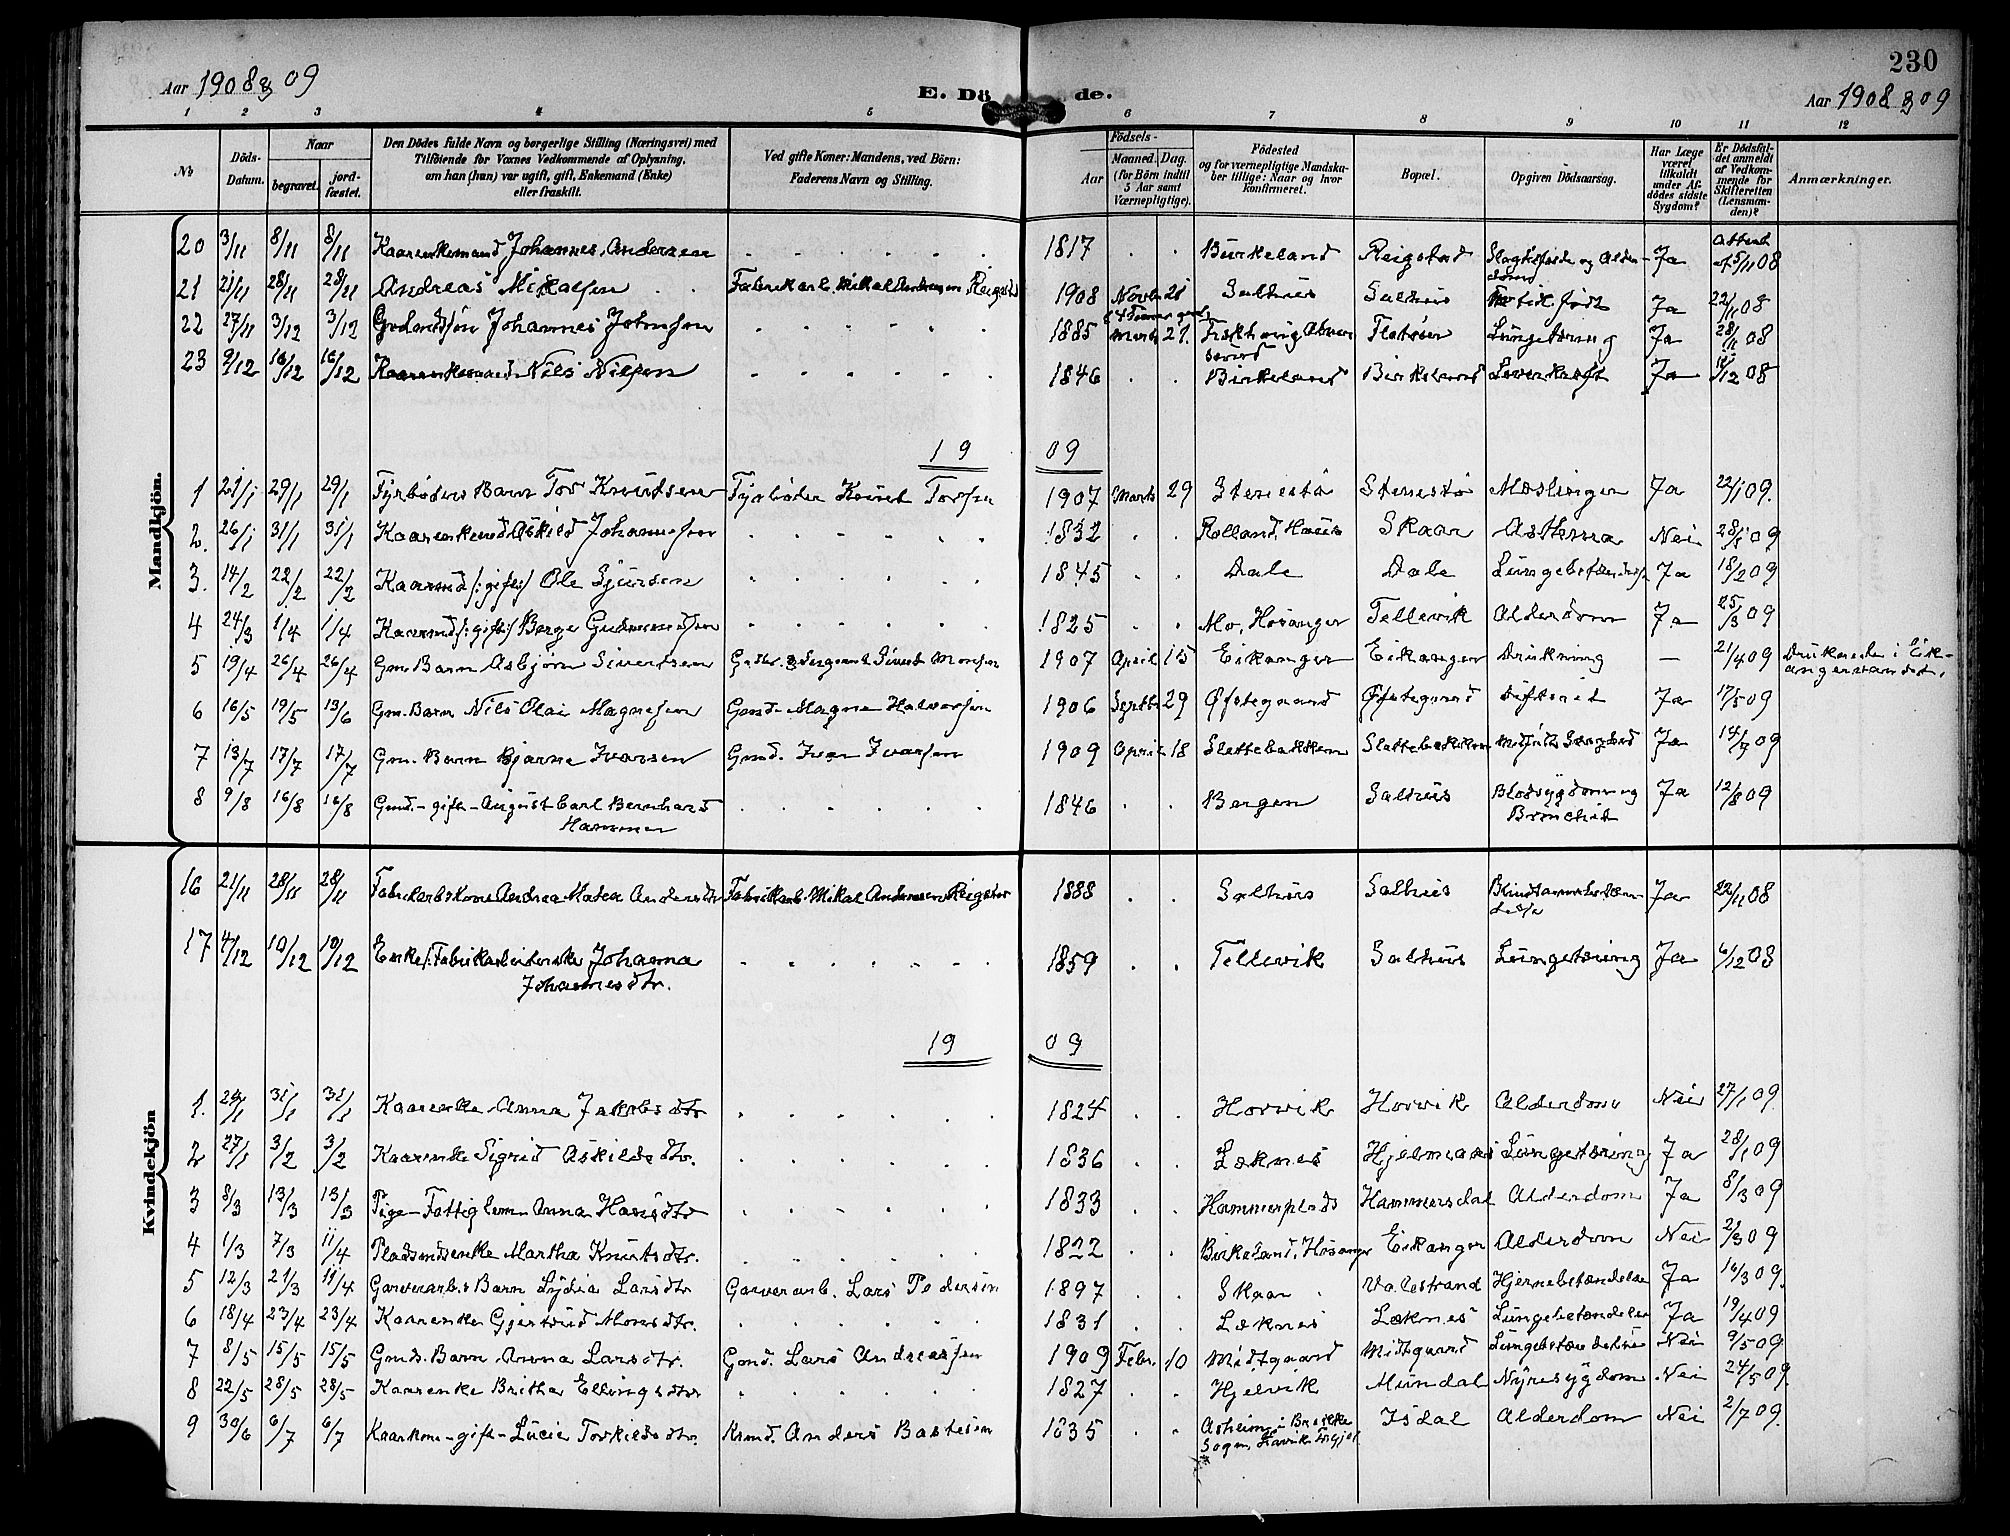 230
Aar 1908 & 09
E. Döde.
Aar 1908 & 09
1 2 3 4 5 6 7 8 9 10 11 12
No
Döds-Datum.
Naar begravet. jord-fæstet.
Den Dödes fulde Navn og borgerlige Stilling (Næringsvei) med Tilföiende for Voxnes Vedkommende af Oplysning, om han (hun) var ugift, gift, Enkemand (Enke) eller fraskilt.
Ved gifte Koner: Mandens, ved Börn: Faderens Navn og Stilling.
Födsels- Aar Maaned. Dag. (for Börn indtil 5 Aar samt Værnepligtige).
Födested og for værnepligtige Mandskaber tillige: Naar og hvor konfirmeret.
Bopæl.
Opgiven Dödsaarsag.
Har Læge været tilkaldt under Afdödes sidste Sygdom?
Er Dödsfaldet anmeldt af Vedkommende for Skifteretten (Lensmanden)?
Anmærkninger.
Mandkjön.
20 3/11 8/11 8/11 Kaarenkemand Johannes Andersen 1817 Birkeland Reigstad Slagtilfælde og Alderdom Ja Attest af 5/11 08
21 21/11 28/11 28/11 Andreas Mikalsen Fabrikarb. Mikal Andersen Reigstad 1908 Novb. 21 Salhus Salhus For tidl. født Ja 22/11 08
22 27/11 3/12 3/12 Gudmdssön Johannes Johnsen 1885 Marts 27. Flatöen Lungetæring Ja 28/11 08
23 9/12 16/12 16/12 Kaarenkemand Nils Nilsen 1846 Birkeland Birkeland Leverkræft Ja 12 08
1909
1 21/1 29/1 29/1 Fyrböders Barn Tor Knudsen Fyrböder Knut Torsen 1907 Marts 29 Stenestö Stenestö Mæslinger Ja 22/1 09.
2. 26/1 31/1 31/1 Kaarenkemd Askild Johannessen 1832 Rolland, Haus Skaar Asthma Nei 28/1 09
3. 14/2 22/2 22/2 Kaarmd /: gift:/ Ole Sjursen 1845 Dale Dale Lungebetændelse Ja 18/2 09
4 24/3 1/4 1/4 Kaarmd /: gift:/ Børge Gudmundsen 1825 Mo, Hosanger Tellevik Alderdom Ja 25/3 09
5 19/4 26/4 26/4 Gm. Barn Asbjørn Sivertsen Gmbr. & Sergeant Sivert Monsen 1907 April 15 Eikanger Eikanger Drukning — 21/4 09 Druknede i Eikangervandet.
6 16/5 19/5 13/6 Gm. Barn Nils Olai Magnesen Gmd. Magne Halvorsen 1906 Septbr. 29 Øfstegaard Øfstegaard Difterit Ja 17/5 09
7 13/7 17/7 17/7 Gm. Barn Bjarne Ivarsen Gmd. Ivar Ivarsen 1909 April 18 Slettebakken Slettebakken Ja 14/7 09
8 9/8 16/8 16/8 Gmd. - gift - August Carl Bernhard Hammer 1846 Bergen Salhus Blodsygdom og Bronchit Ja 12/8 09
Kvindekjön
16 21/11 28/11 28/11 Fabrikarbs Kone Andrea Matea Andersdtr. Fabrikarb. Mikal Andersen Reigstad 1888 Salhus Salhus Blindtarmsbetændelse Ja 22/11 08
17 4/12 10/12 10/12 Enke /: Fabrikarbeiderske Johanna Johannesdtr. 1859 Tellevik Salhus Lungetæring Ja 6/12 08
1909
1. 24/1 31/1 31/1 Kaarenke Anna Jakobsdtr 1824 Horvik Horvik Alderdom Nei 27/1 09
2 27/1 3/2 3/2 Kaarenke Sigrid Askildsdtr. 1836 Læknes Hjelmaas Lungetæring Ja 28/1 09
3 8/3 13/3 13/3 Pige - Fattiglem - Anna Hansdtr 1833 Hammerplads Hammersdal Alderdom Ja 8/3 09
4 1/3 7/3 11/4 Pladsmdsenke Martha Knutsdtr. 1822 Birkeland, Hosanger Eikanger Alderdom Nei 2/3 09
5 12/3 21/3 11/4 Garverarbs Barn Lydia Larsdtr Garverarb. Lars Pedersen 1897 Skaar Valestrand Hjernebetændelse Ja 16/3 09.
6 18/4 23/4 23/4 Kaarenke Gjertrud Monsdtr. 1831 Læknes Læknes Lungebetændelse Ja 19/4 09
7 8/5 15/5 15/5 Gmds. Barn Anna Larsdtr. Gmd. Lars Andreassen 1909 Febr. 10 Midtgaard Midtgaard Lungebetændelse Nei 9/5 09
8 22/5 28/5 28/5 Kaarenke Britha Ellingsdtr 1827 Hjelvik Mundal Nyresygdom Nei 24/5 09.
9 30/6 6/7 6/7 Kaarkone - gift - Lucie Torkildsdtr. Kmd. Anders Bastesen 1835 Asheim i Brække Sogn, Isdal Alderdom Nei 2/7 09.